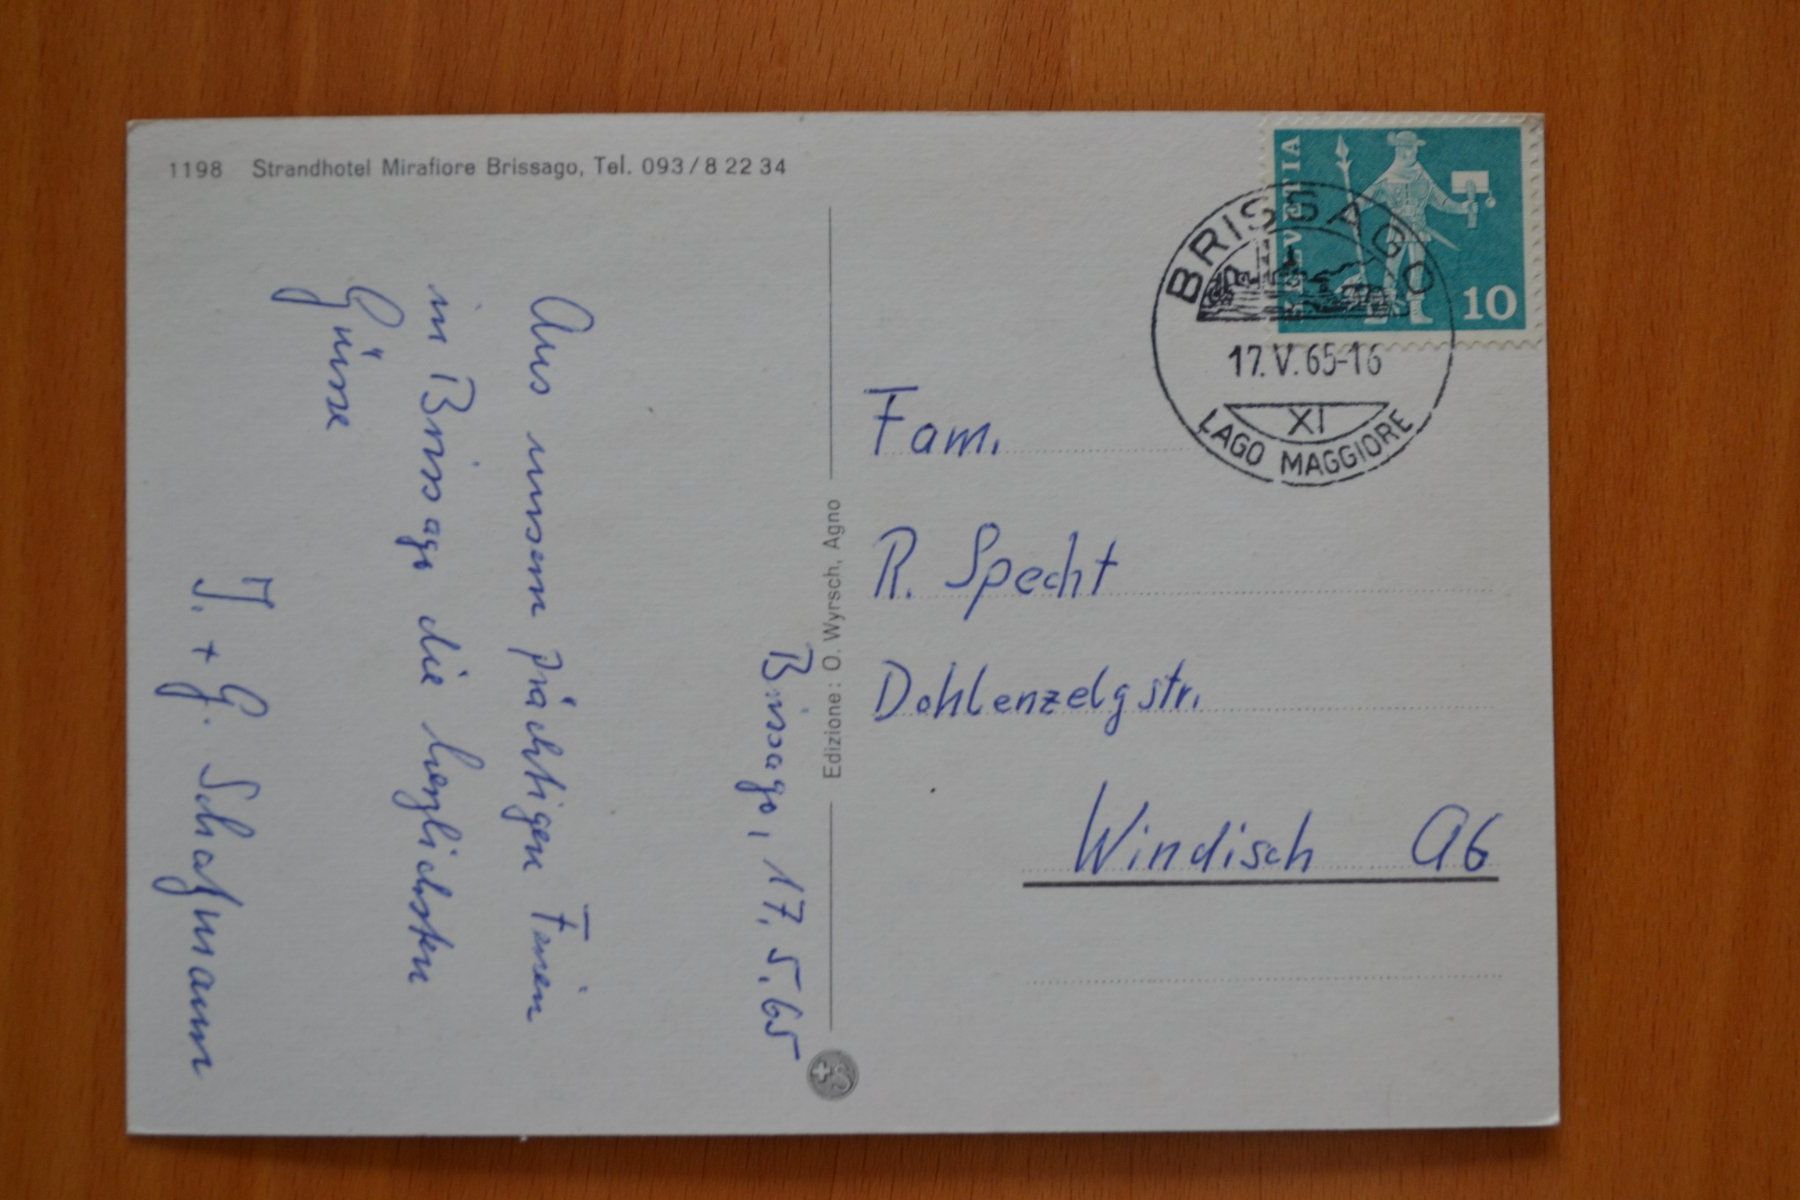 1198 Strandhotel Mirafiore Brissago, Tel. 093/8 22 34
Brissago, 17.5.65
Aus unsern prächtigen Ferien
in Brissago die herzlichsten
Grüsse
J. + G. Schafmann
Edizione: O. Wyrsch, Agno
HELVETIA
10
BRISSAGO
17.V.65-16
XI
LAGO MAGGIORE
Fam.
R. Specht
Dohlenzelgstr.
Windisch AG